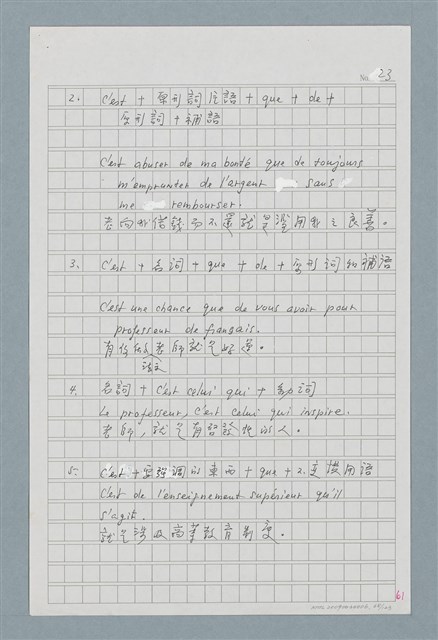 No. 23
2. C'est + 原形詞片語 + que + de +
原形詞 + 補語
C'est abuser de ma bonté que de toujours
m'emprunter de l'argent sans
me rembourser.
老向我借錢而不還就是濫用我之良善。
3. C'est + 名詞 + que + de + 原形詞的補語
C'est une chance que de vous avoir pour
professeur de français.
有你的老師就是好運。
4. 名詞 + C'est celui qui + 動詞
Le professeur, c'est celui qui inspire.
老師,就是有啓發性的人。
5. C'est + 要強調的東西 + que + 2.支撐用語
C'est de l'enseignement supérieur qu'il
s'agit.
就是涉及高等教育制度。
61